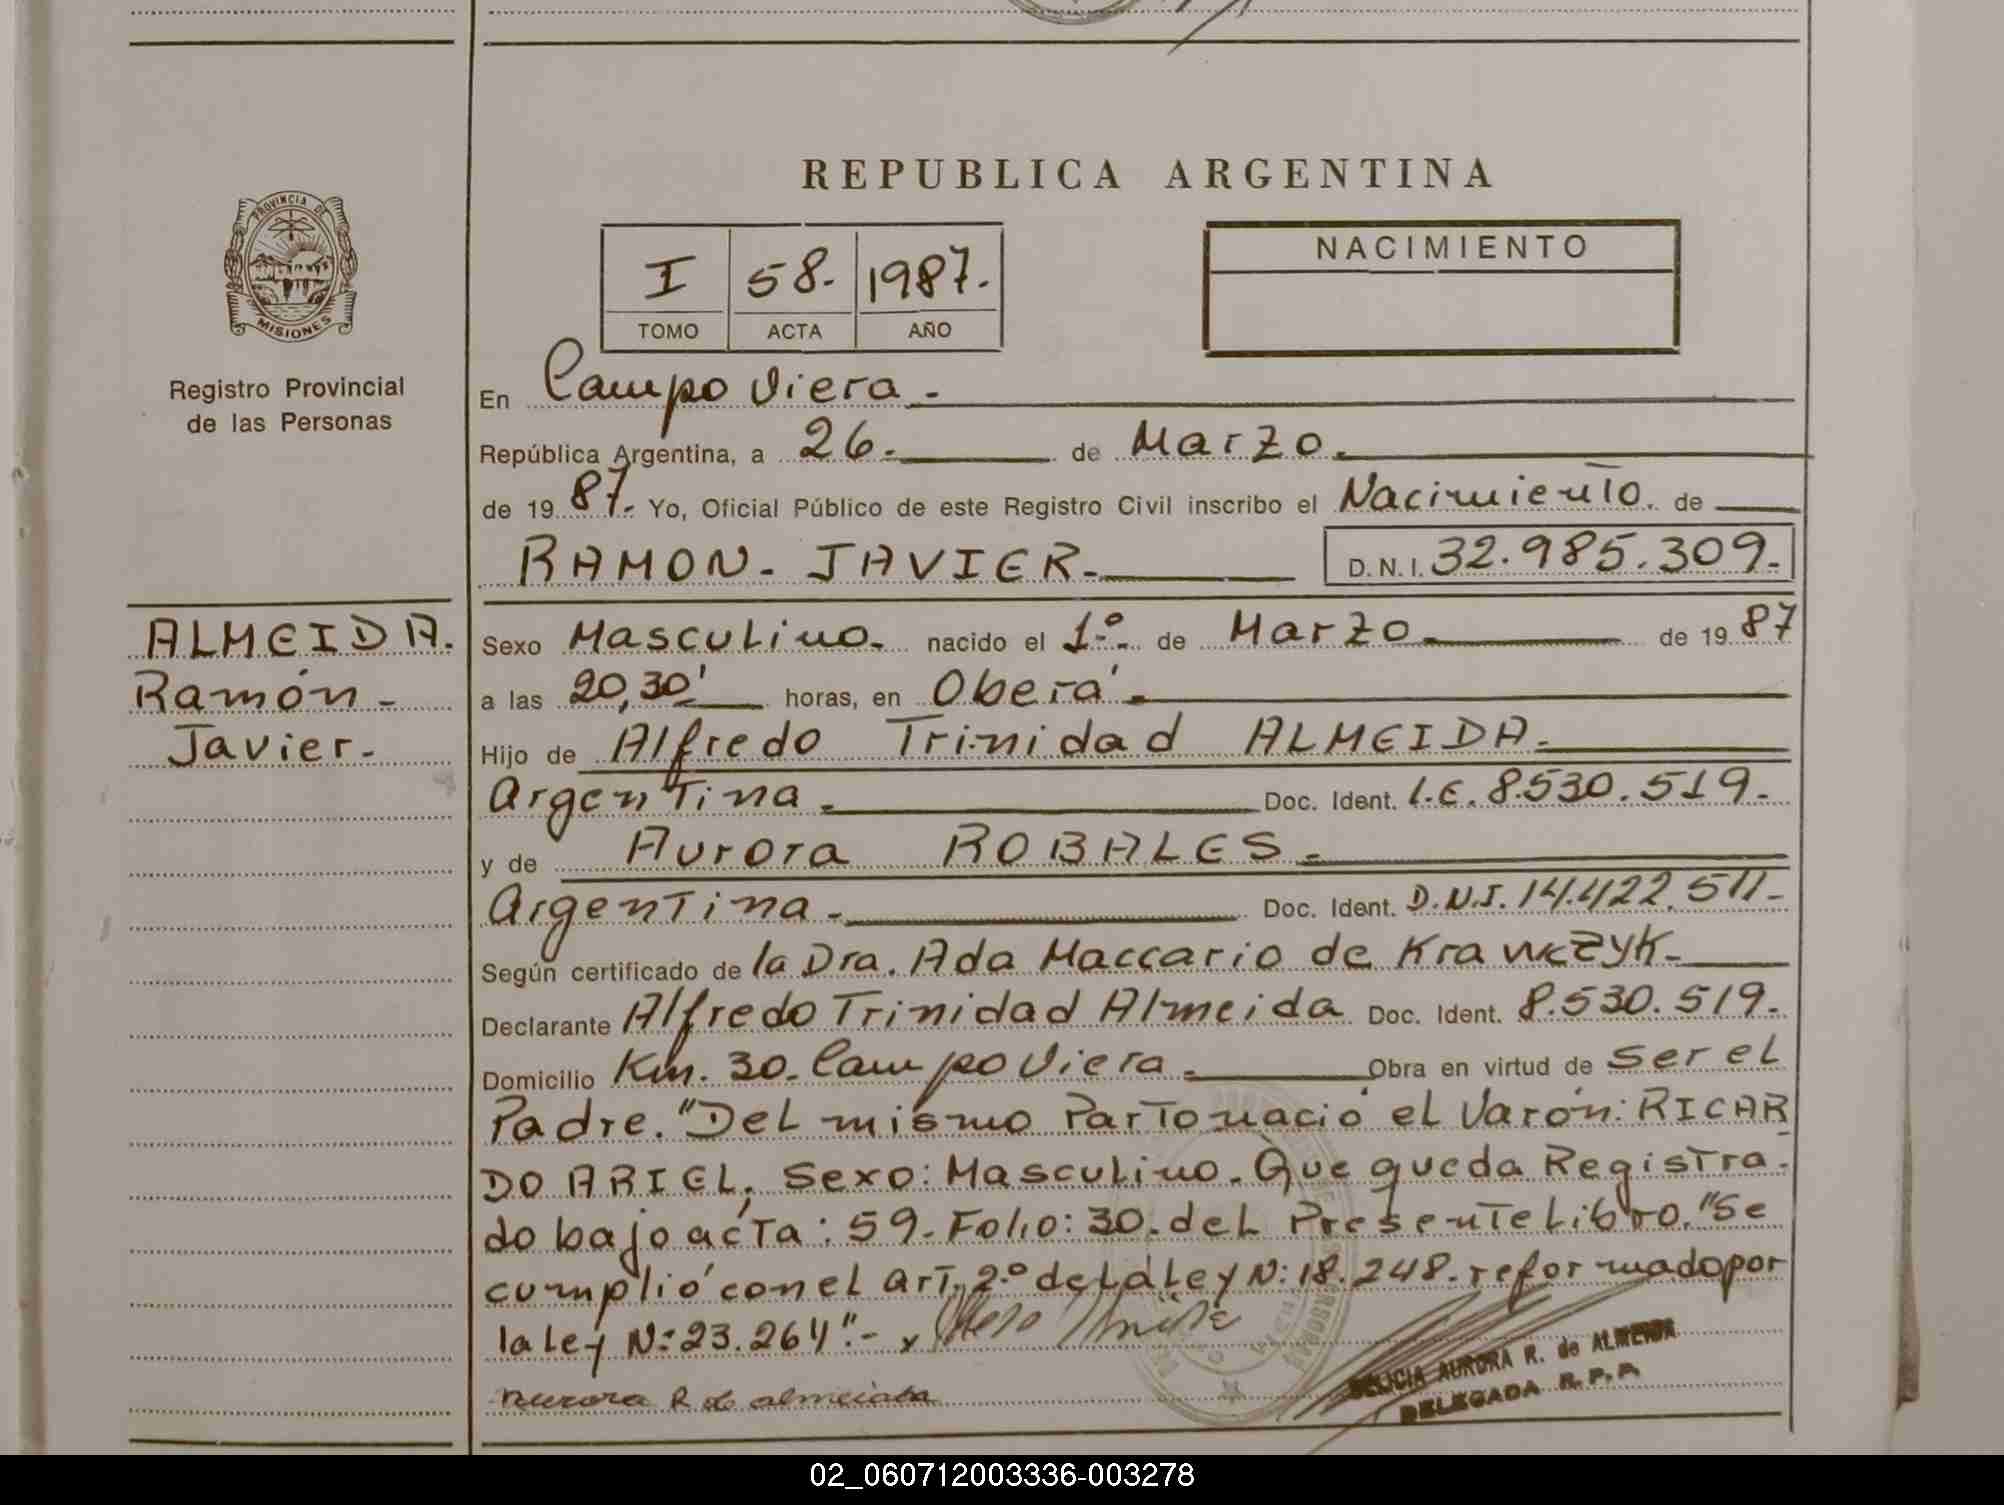 REPUBLICA ARGENTINA
PROVINCIA DE
MISIONES
Registro Provincial
de las Personas
I 58.- 1987.-
TOMO ACTA AÑO
NACIMIENTO
En Campo Viera.-
República Argentina, a 26.- de Marzo.
de 19 87.- Yo, Oficial Público de este Registro Civil inscribo el Nacimiento. de
RAMON- JAVIER- D.N.I. 32.985.309.-
ALMEIDA.
Ramón-
Javier-
Sexo Masculino- nacido el 1º.- de Marzo de 19 87
a las 20,30' horas, en Oberá-
Hijo de Alfredo Trinidad ALMEIDA.-
Argentina.- Doc. Ident. L.E. 8.530.519.-
y de Aurora ROBALES.-
Argentina.- Doc. Ident. D.N.I. 14.422.511.-
Según certificado de la Dra. Ada Maccario de Krawczyk-
Declarante Alfredo Trinidad Almeida Doc. Ident. 8.530.519.-
Domicilio Km. 30- Campo Viera.- Obra en virtud de Ser el
Padre. "Del mismo Parto nació el Varón: RICAR
DO ARIEL, Sexo: Masculino. Que queda Registra-
do bajo acta: 59- Folio: 30. del Presente Libro. "Se
cumplió con el Art. 2.º de La Ley N: 18.248. reformado por
la Ley N: 23.264".- x
Aurora R de almeida
DELICIA AURORA R. de ALMEIDA
DELEGADA R.P.P.
02_060712003336-003278